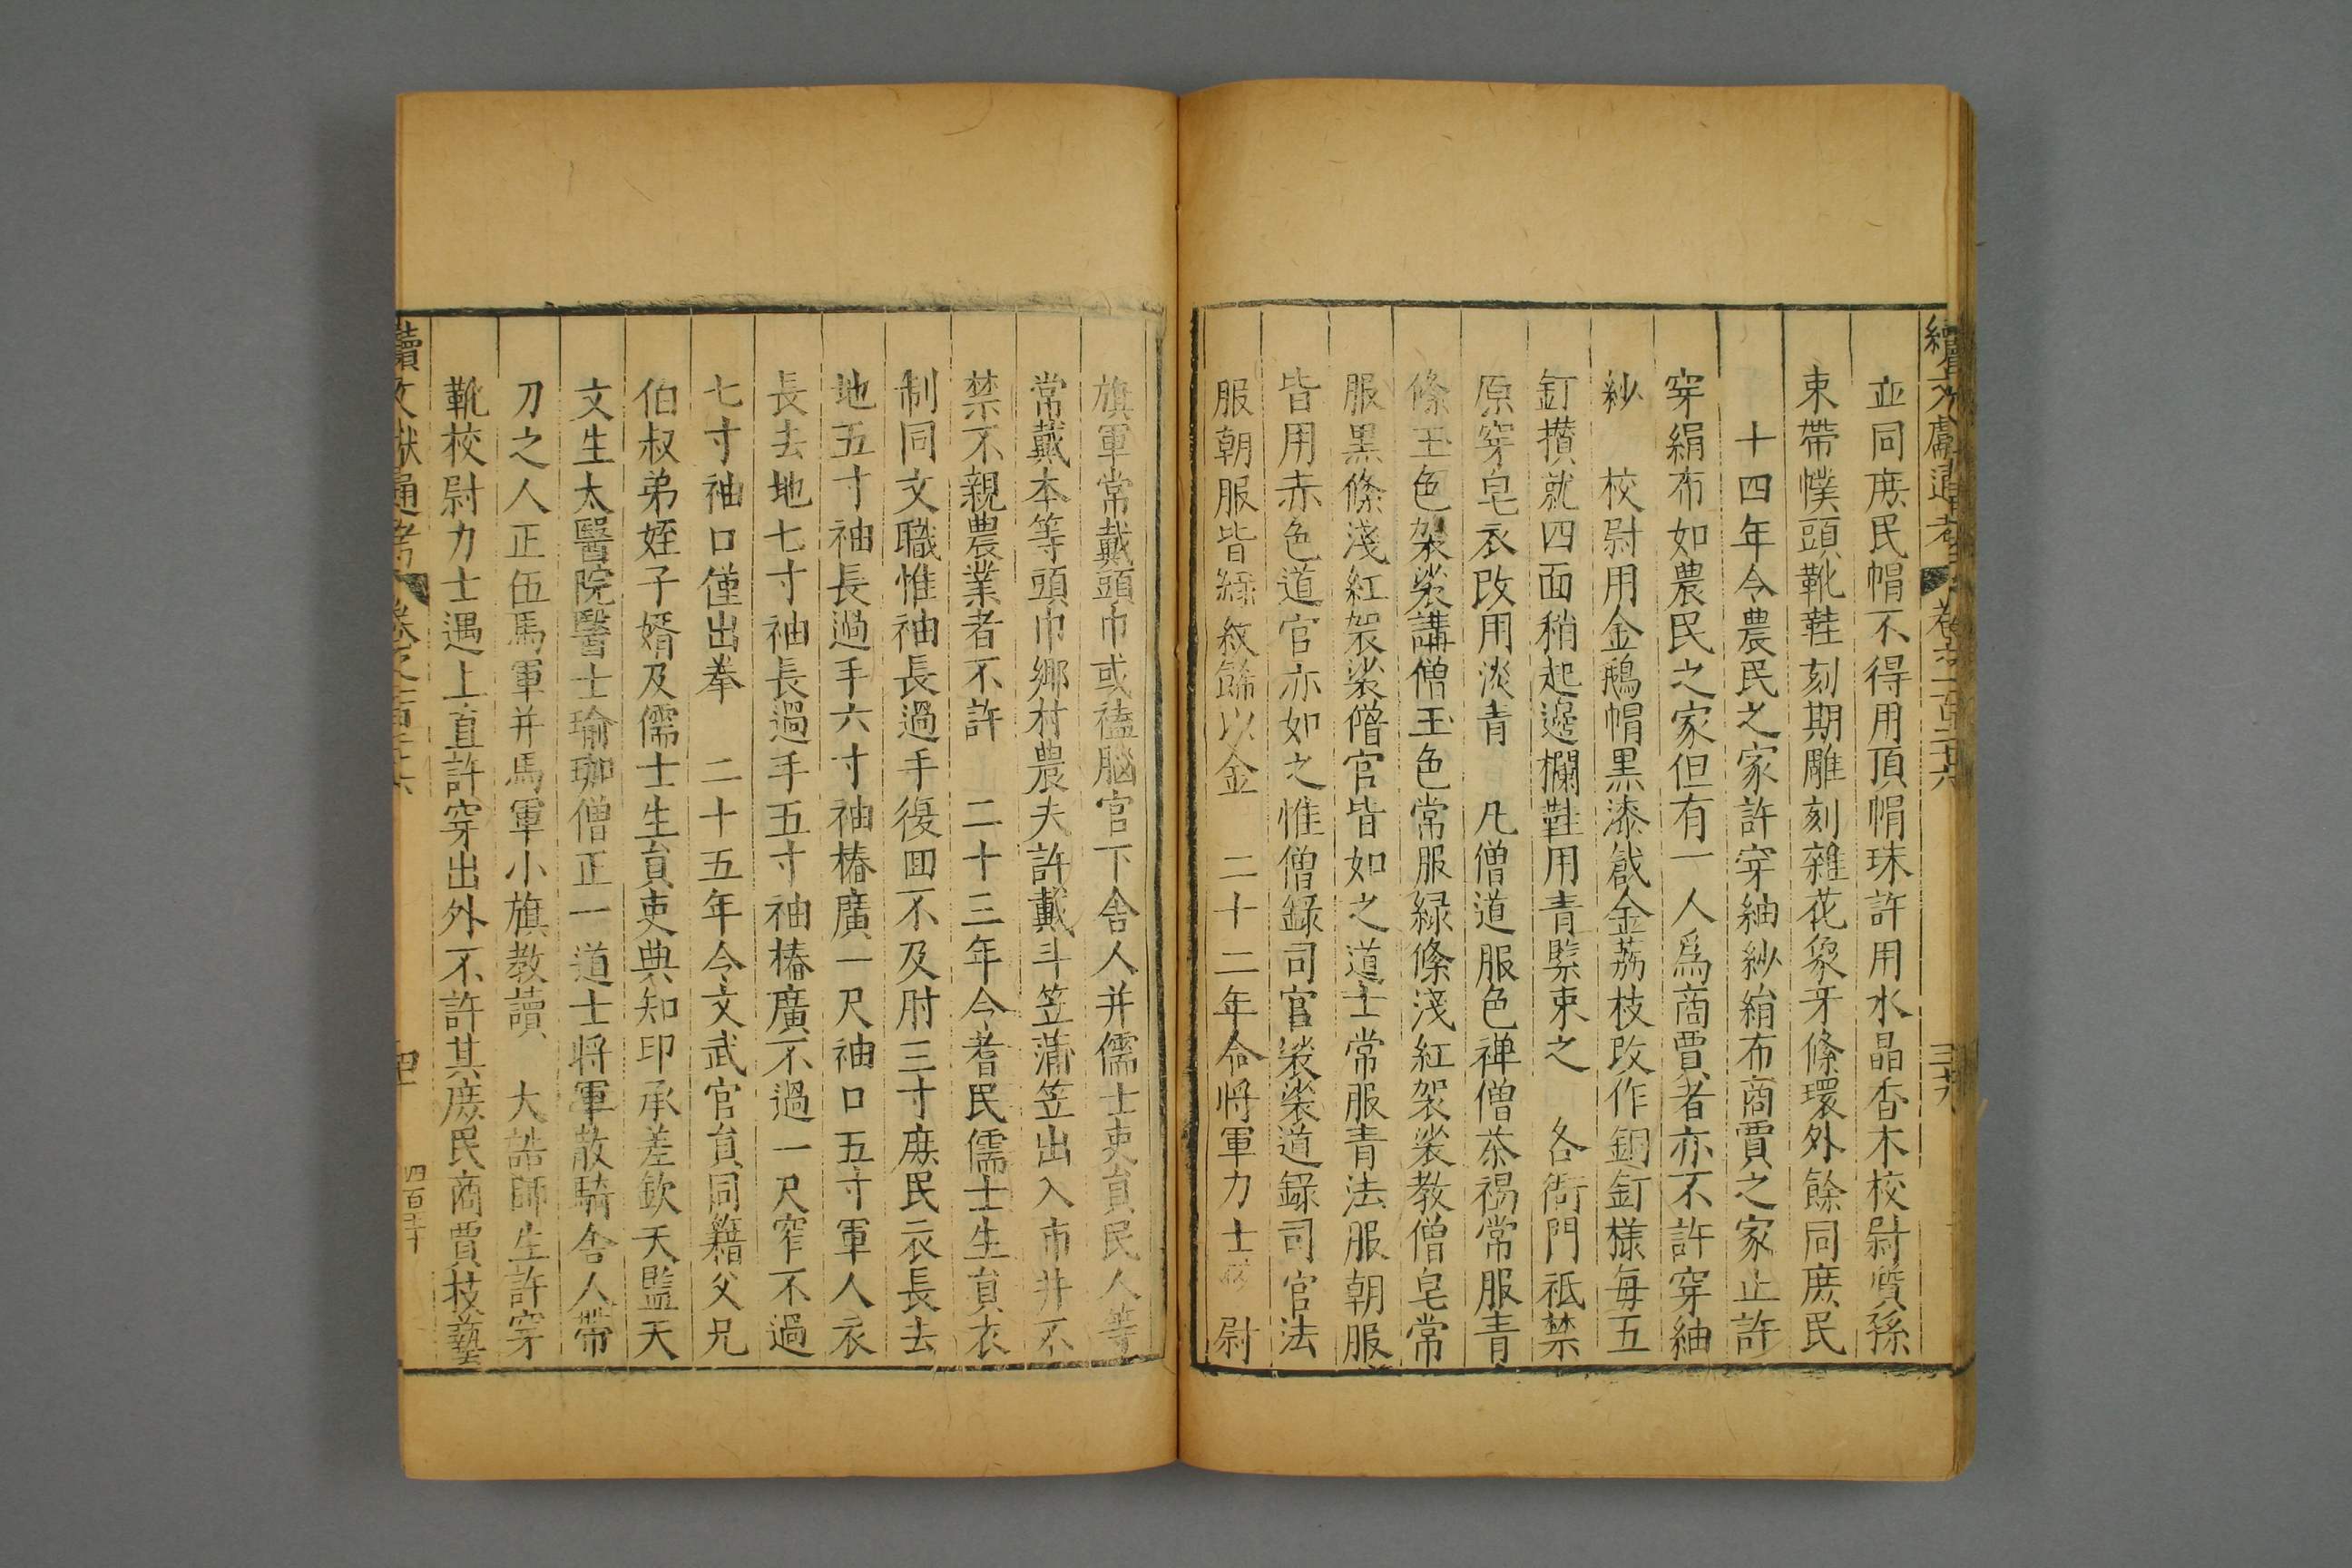 續文獻通考 卷之一百三十六 三十九
並同庶民帽不得用頂帽珠許用水晶香木校尉質孫
束帶幞頭靴鞋刻期雕刻雜花象牙絛環外餘同庶民
十四年令農民之家許穿紬紗絹布商賈之家止許
穿絹布如農民之家但有一人爲商賈者亦不許穿紬
紗 校尉用金鵝帽黑漆戧金荔枝改作銅釘樣每五
釘攅就四面稍起邊欄鞋用青緊束之 各衙門祗禁
原穿皂衣改用淡青 凡僧道服色禅僧茶褐常服青
絛玉色袈裟講僧玉色常服緑絛淺紅袈裟教僧皂常
服黑絛淺紅袈裟僧官皆如之道士常服青法服朝服
皆用赤色道官亦如之惟僧錄司官袈裟道錄司官法
服朝服皆緑紋餙以金 二十二年命將軍力士校尉
旗軍常戴頭巾或磕腦官下舍人并儒士吏員民人等
常戴本等頭巾鄉村農夫許戴斗笠蒲笠出入市井不
禁不親農業者不許 二十三年令耆民儒士生員衣
制同文職惟袖長過手復囬不及肘三寸庶民衣長去
地五寸袖長過手六寸袖椿廣一尺袖口五寸軍人衣
長去地七寸袖長過手五寸袖椿廣不過一尺窄不過
七寸袖口僅出拳 二十五年令文武官員同籍父兄
伯叔弟姪子婿及儒士生員吏典知印承差欽天監天
文生太醫院醫士瑜珈僧正一道士將軍散騎舍人帶
刀之人正伍馬軍并馬軍小旗教讀 大誥師生許穿
靴校尉力士遇上直許穿出外不許其庶民商賈技藝
續文獻通考 卷之一百三十六 四十